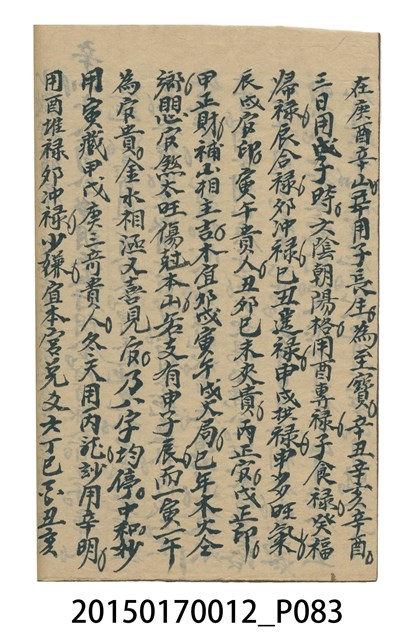 在庚酉辛山卦用子長生為至寶辛丑辛亥辛酉
三日用戊子時六陰朝陽格用酉專祿子食祿癸福
歸祿辰合祿卯冲祿巳丑遥祿申戌拱祿申多旺氣
辰戌官印寅午貴人丑卯巳未夾貴丙正官戊正印
甲正財補山相主吉木宜卯戌寅午戌火局巳年木火全
鄉但官煞太旺傷尅本山若支有申子辰而一寅一午
為官貴金水相涵又喜見官乃八字均停中和妙
用寅藏甲戊庚三奇貴人冬天用丙竜妙用辛明
用酉堆祿卯冲祿少嫌宜本宮兌艾六丁巳不丑亥
20150170012_P083